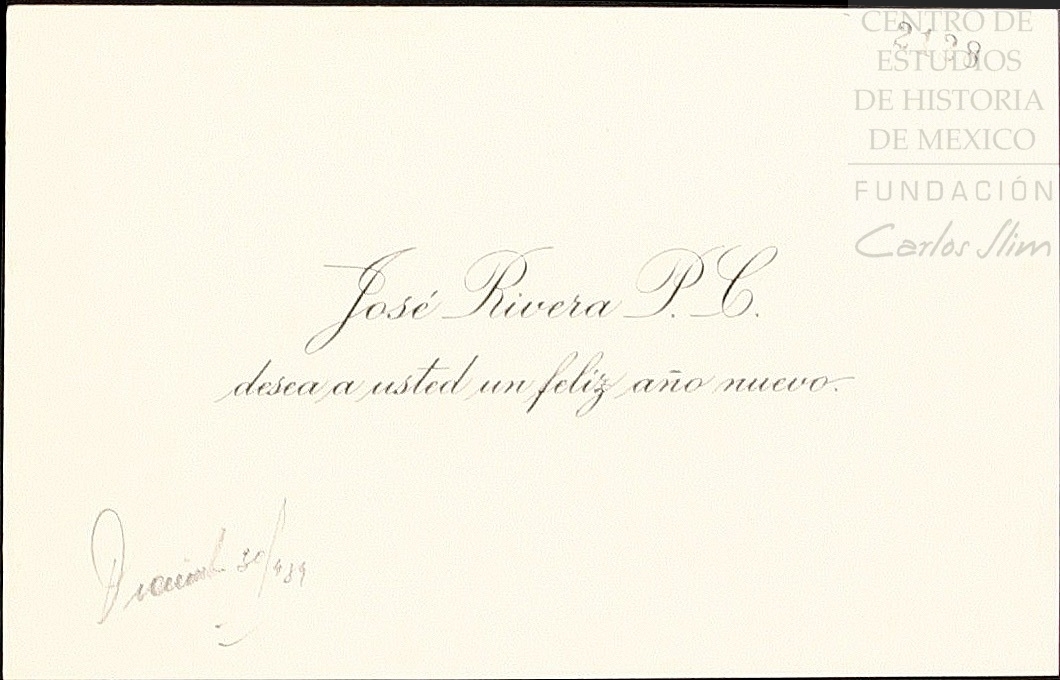 CENTRO DE
ESTUDIOS
DE HISTORIA
DE MEXICO
FUNDACIÓN
Carlos Slim
José Rivera P. C.
desea a usted un feliz año nuevo.
30/939